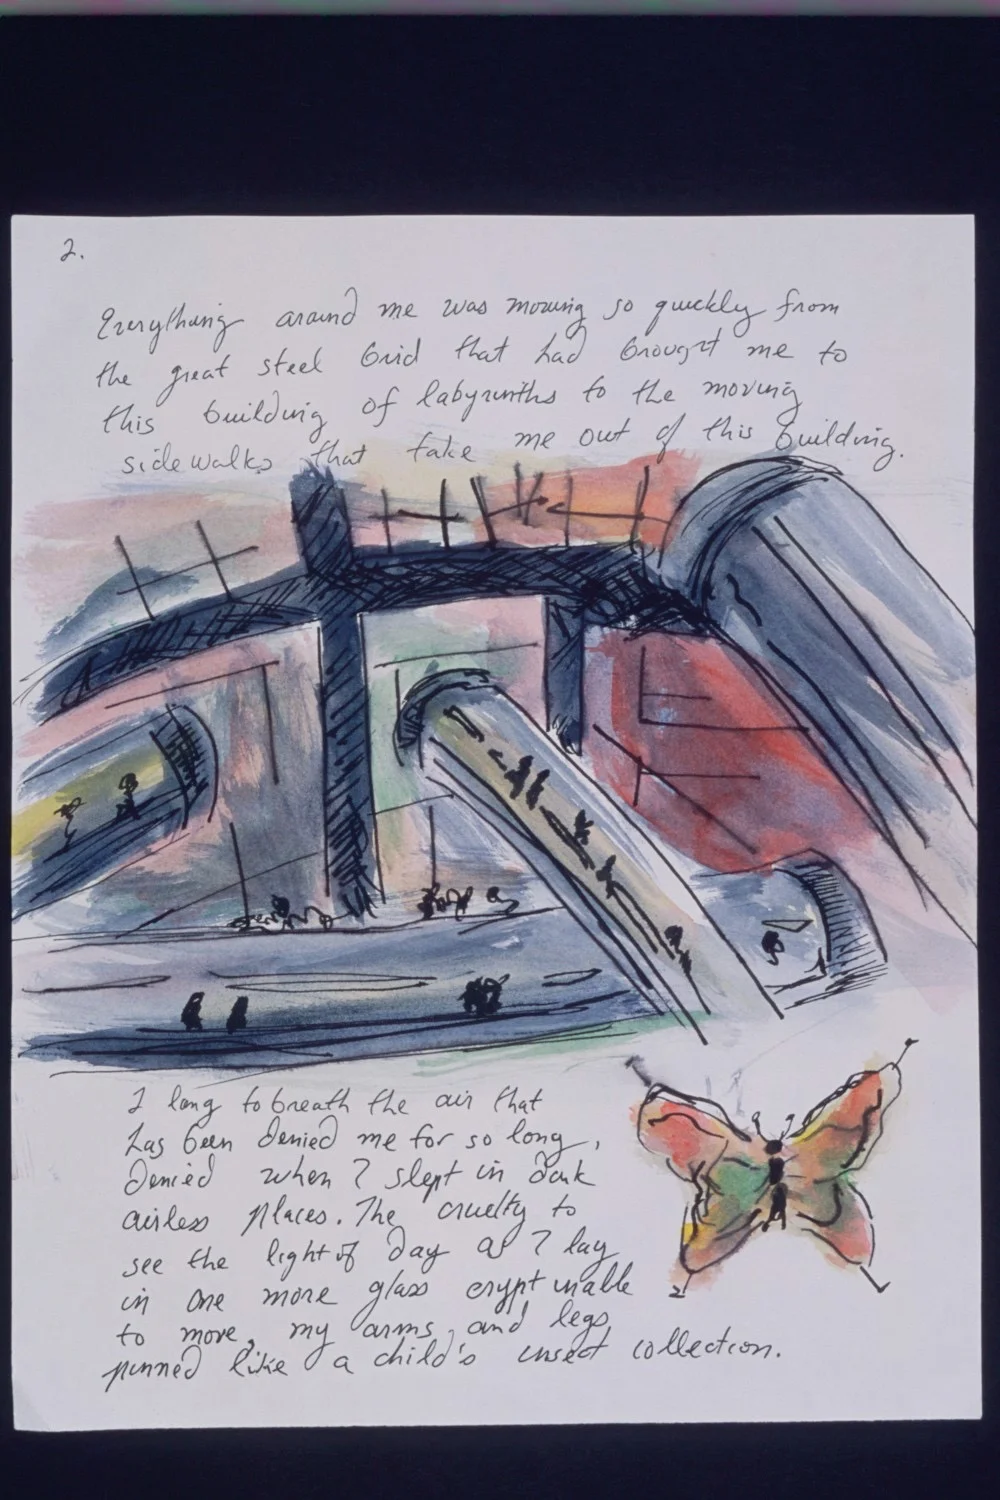 2.
Everything around me was moving so quickly from
the great steel bird that had brought me to
this building of labyrinths to the moving
sidewalks that take me out of this building.
I long to breath the air that
has been denied me for so long,
denied when I slept in dark
airless places. The cruelty to
see the light of day as I lay
in one more glass crypt unable
to move, my arms and legs
pinned like a child's insect collection.